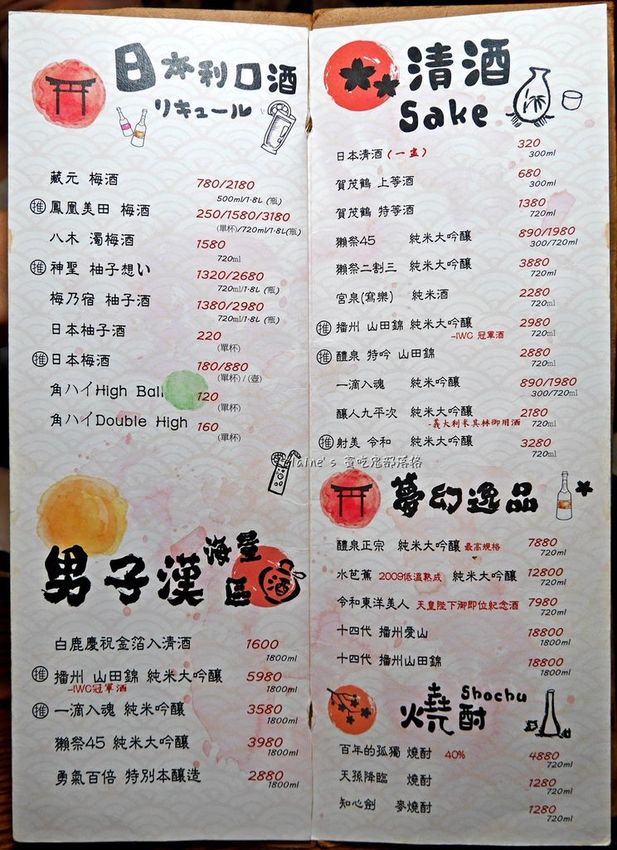 日本利口酒
リキュール
藏元 梅酒 780/2180
500ml/1.8L (瓶)
推 鳳凰美田 梅酒 250/1580/3180
(單杯)/720ml/1.8L(瓶)
八木 濁梅酒 1580
720ml
推 神聖 柚子想い 1320/2680
720ml/1.8L (瓶)
梅乃宿 柚子酒 1380/2980
720ml/1.8L (瓶)
日本柚子酒 220
(單杯)
推 日本梅酒 180/880
(單杯)/(壺)
角ハイHigh Ball 120
(單杯)
角ハイDouble High 160
(單杯)
男子漢 海量區
酒
白鹿慶祝金箔入清酒 1600
1800ml
推 播州 山田錦 純米大吟釀 5980
-IWC冠軍酒 1800ml
推 一滴入魂 純米吟釀 3580
1800ml
獺祭45 純米大吟釀 3980
1800ml
勇氣百倍 特別本釀造 2880
1800ml
清酒
Sake
日本清酒(一盅) 320
300ml
賀茂鶴 上等酒 680
300ml
賀茂鶴 特等酒 1380
720ml
獺祭45 純米大吟釀 890/1980
300/720ml
獺祭二割三 純米大吟釀 3880
720ml
宮泉(寫樂) 純米酒 2280
720ml
推 播州 山田錦 純米大吟釀 2980
-IWC 冠軍酒 720ml
推 醴泉 特吟 山田錦 2880
720ml
一滴入魂 純米吟釀 890/1980
300/720ml
釀人九平次 純米大吟釀 2180
-義大利米其林御用酒 720ml
推 射美 令和 純米大吟釀 3280
720ml
夢幻逸品
醴泉正宗 純米大吟釀 最高規格 7880
720ml
水芭蕉 2009低溫熟成 純米大吟釀 12800
720ml
令和東洋美人 天皇陛下御即位紀念酒 7980
720ml
十四代 播州愛山 18800
720ml
十四代 播州山田錦 18800
720ml
燒酎
Shochu
百年的孤獨 燒酎 40% 4880
720ml
天孫降臨 燒酎 1280
720ml
知心劍 麥燒酎 1280
720ml